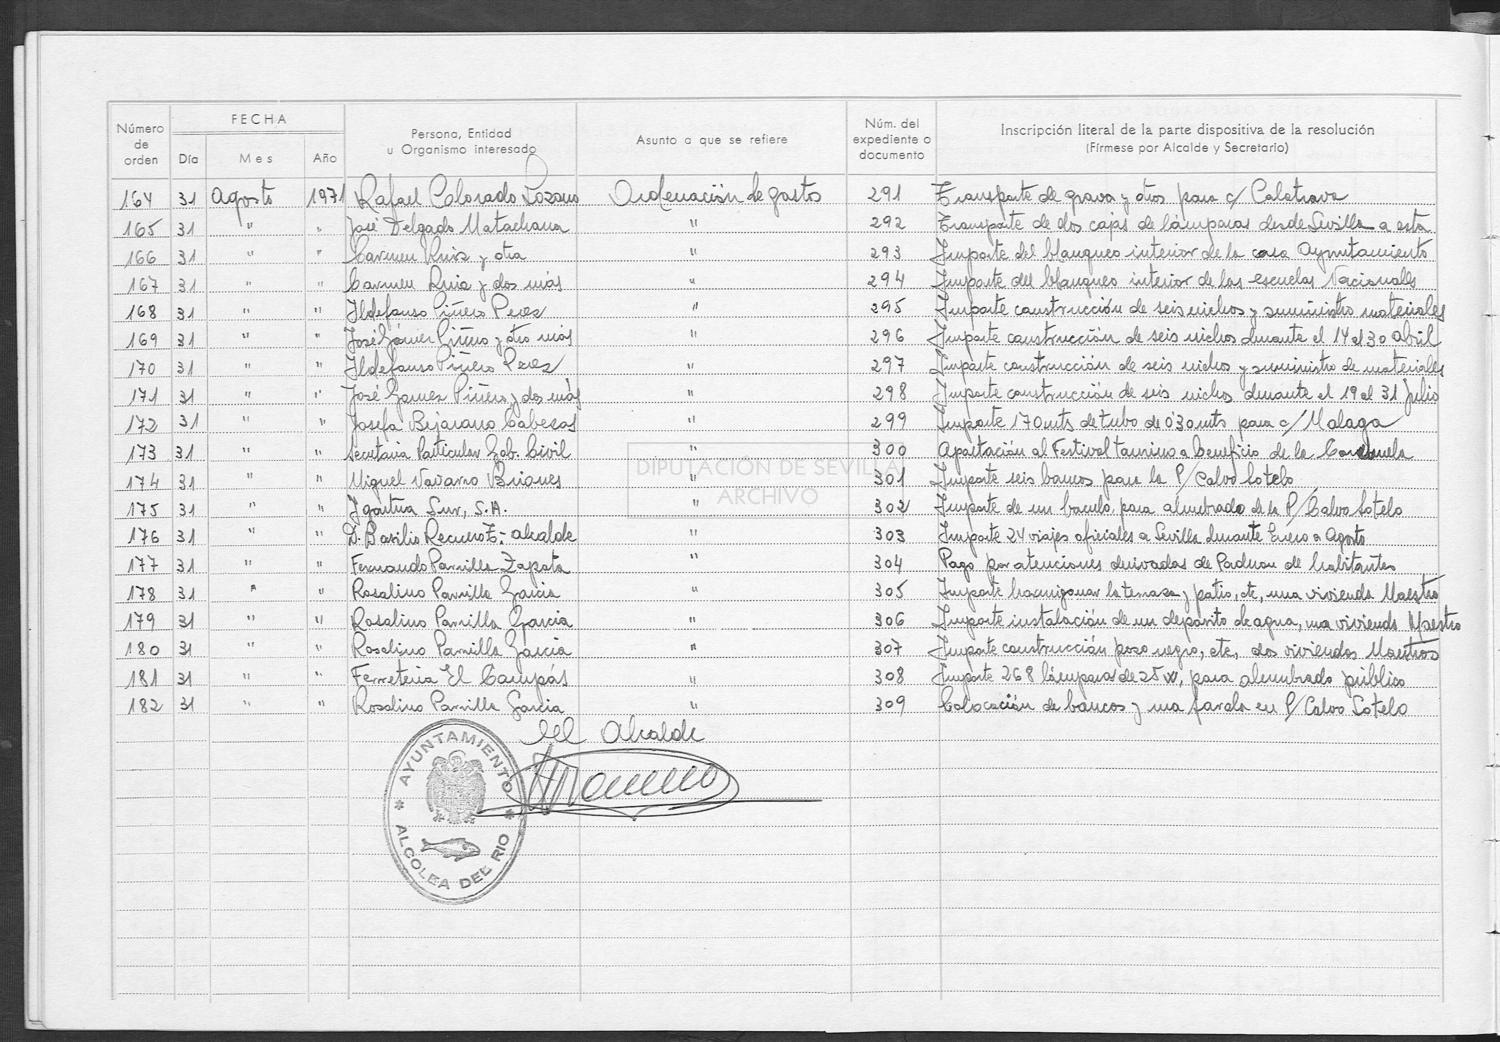 Número de orden | FECHA | Persona, Entidad u Organismo interesado | Asunto a que se refiere | Núm. del expediente o documento | Inscripción literal de la parte dispositiva de la resolución (Fírmese por Alcalde y Secretario)
Día | Mes | Año
164 31 Agosto 1971 Rafael Colorado Lozano Ordenación de gastos 291 Transporte de grava y otros para c/ Calatrava
165 31 " " José Delgado Matachana " 292 Transporte de dos cajas de lámparas desde Sevilla a esta
166 31 " " Carmen Ruiz y otra " 293 Importe del blanqueo interior de la casa Ayuntamiento
167 31 " " Carmen Ruiz y dos más " 294 Importe del blanqueo interior de las escuelas Nacionales
168 31 " " Ildefonso Piñero Perez " 295 Importe construcción de seis nichos y suministro materiales
169 31 " " José Gómez Piñero y otro más " 296 Importe construcción de seis nichos durante el 14 al 30 abril
170 31 " " Ildefonso Piñero Perez " 297 Importe construcción de seis nichos y suministro de materiales
171 31 " " José Gomez Piñero y dos más " 298 Importe construcción de seis nichos durante el 19 al 31 Julio
172 31 " " Josefa Bejarano Cabezas " 299 Importe 170 mts de tubo de 0'30 mts para c/ Malaga
173 31 " " Secretaria Particular Gob. Civil " 300 Aportación al Festival taurino a beneficio de la
174 31 " " Miguel Navarro Briones " 301 Importe seis bancos para la P/ Calvo Sotelo
175 31 " " Sur, S.A. " 302 Importe de un baculo, para alumbrado de la P/ Calvo Sotelo
176 31 " " D. Basilio Recuero - alcalde " 303 Importe 24 viajes oficiales a Sevilla durante Enero a Agosto
177 31 " " Fernando Parrilla Zapata " 304 Pago por atenciones derivadas de Padron de habitantes
178 31 " " Rosalino Parrilla Garcia " 305 Importe hormigonar la terraza y patio, etc, una vivienda Maestro
179 31 " " Rosalino Parrilla Garcia " 306 Importe instalación de un deposito de agua, una vivienda Maestro
180 31 " " Rosalino Parrilla Garcia " 307 Importe construcción pozo negro, etc, dos viviendas Maestros
181 31 " " Ferreteria El Compás " 308 Importe 268 lámparas de 25 W, para alumbrado público
182 31 " " Rosalino Parrilla Garcia " 309 Colocación de bancos y una farola en P/ Calvo Sotelo
DIPUTACIÓN DE SEVILLA
ARCHIVO
El Alcalde
AYUNTAMIENTO
ALCOLEA DEL RIO